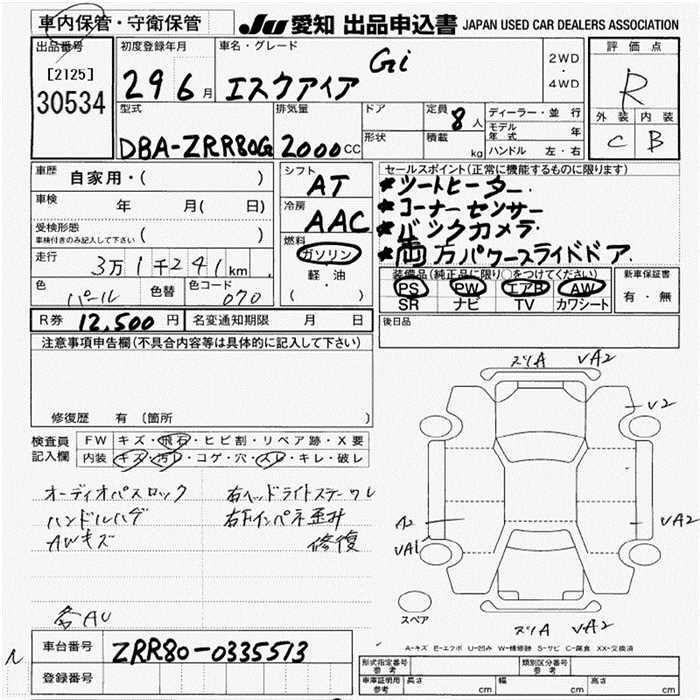 車内保管・守衛保管
JU 愛知 出品申込書 JAPAN USED CAR DEALERS ASSOCIATION
出品番号
[2125]
30534
初度登録年月
29 6月
車名・グレード
Gi
エスクァイア
2WD
・
4WD
評価点
R
外装 内装
C B
型式
DBA-ZRR80G
排気量
2000cc
ドア
形状
定員
8人
積載 kg
ディーラー・並行
モデル年式 年
ハンドル 左・右
車歴
自家用・( )
車検 年 月( 日)
受検形態
車検付きのみ記入して下さい ( )
走行
3万1千241km
色
パール
色替
色コード
070
シフト
AT
冷房
AAC
燃料
ガソリン
・
軽油
( )
セールスポイント(正常に機能するものに限ります)
★シートヒーター
★コーナーセンサー
★バックカメラ
★両方パワースライドドア
装備品(純正品に限り○をつけてください)
PS PW エアB AW
SR ナビ TV カワシート
新車保証書
有・無
R券 12,500円
名変通知期限 月 日
後日品
注意事項申告欄(不具合内容等は具体的に記入して下さい)
修復歴 有 (箇所 )
検査員記入欄
FW キズ・飛石・ヒビ割・リペア跡・X要
内装 キズ・汚レ・コゲ・穴・スレ・キレ・破レ
オーディオパスロック
ハンドルハゲ
AWキズ
右ヘッドライトステーワレ
右Fインパネ歪み
修復
各AU
ズリA VA2
V2
A2
VA1
VA2
スペア
ズリA VA2
A-キズ E-エクボ U-凹み W-補修跡 S-サビ C-腐食 XX-交換済
車台番号 ZRR80-0335513
登録番号
型式指定番号
参考
類別区分番号
参考
車庫証明用
参考
長さ cm
幅 cm
高さ cm